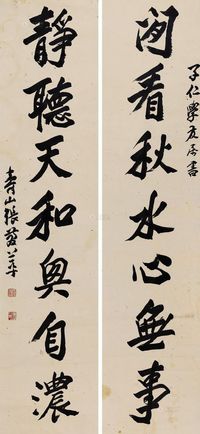 子仁學友屬書
閒看秋水心無事
靜聽天和興自濃
壽山張